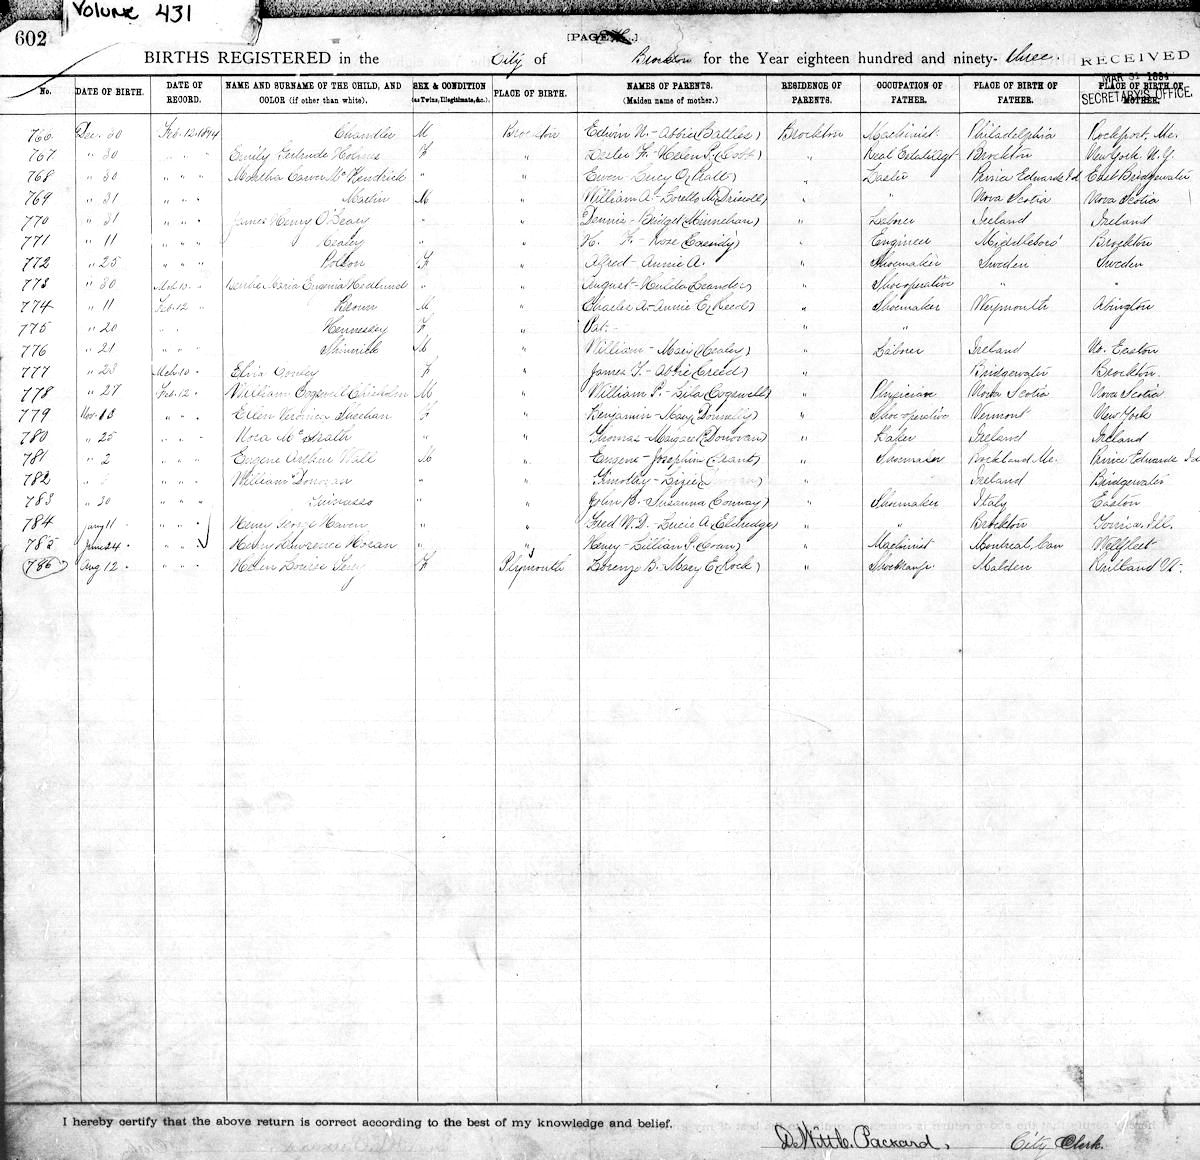 Volume 431
602
[PAGE .]
BIRTHS REGISTERED in the City of Brockton for the Year eighteen hundred and ninety- three.
RECEIVED
MAR 31 1894
SECRETARY'S OFFICE.
No. DATE OF BIRTH. DATE OF RECORD. NAME AND SURNAME OF THE CHILD, AND COLOR (if other than white). SEX & CONDITION (as Twins, Illegitimate, &c.). PLACE OF BIRTH. NAMES OF PARENTS. (Maiden name of mother.) RESIDENCE OF PARENTS. OCCUPATION OF FATHER. PLACE OF BIRTH OF FATHER. PLACE OF BIRTH OF MOTHER.
766 Dec. 30 Feb. 12. 1894 Chandler M Brockton Edwin N. - Abbie (Bailes) Brockton Machinist Philadelphia Rockport, Me.
767 " 30 " " " Emily Gertrude Holmes F " Lester F. - Helen P. (Cobb) " Real Estate Agt Brockton New York. N.Y.
768 " 30 " " " Martha Carver McKendrick " " Ewen - Lucy A. (Pratt) " Laster Prince Edwards Id East Bridgewater
769 " 31 " " " Martin M " William A. - Loretta M. (Driscoll) " " Nova Scotia Nova Scotia
770 " 31 " " " James Henry O'Leary " " Dennis - Bridget (Minnehan) " Laborer Ireland Ireland
771 " 11 " " " Healey " " H. F. - Rose (Cassidy) " Engineer Middleboro' Brockton
772 " 25 " " " Polson F " Alfred - Annie A. " Shoemaker Sweden Sweden
773 " 30 Mch 10. " Maria Eugenia Hedlund " " August - Hulda (Leander) " Shoe operative " "
774 " 11 Feb. 12 " Brown M " Charles A. - Annie E. (Reed) " Shoemaker Weymouth Abington
775 " 20 " " Hennessey F " Pat. - " " "
776 " 21 " " Shinnick M " William - Mary (Healey) " Laborer Ireland No. Easton
777 " 23 Mch 10 " Elvia Conley F " James T. - Abbie (Creed) " Bridgewater Brockton
778 " 27 Feb. 12 " William Cogswell Chisholm M " William P. - Lila (Cogswell) " Physician Nova Scotia Nova Scotia
779 Nov. 13 " " " Ellen Veronica Sheehan F " Benjamin - Mary (Donnelly) " Shoe operative Vermont New York
780 " 25 " " " Nora McGrath " " Thomas - Margaret (Donovan) " Baker Ireland Ireland
781 " 2 " " " Eugene Arthur Wall M " Eugene - Josephine (Grant) " Shoemaker Rockland Me. Prince Edwards Id
782 " " " " William Donovan " " Timothy - Lizzie " Ireland Bridgewater
783 " 30 " " " " " John B. - Susanna (Conway) " Shoemaker Italy Easton
784 Jany 11 " " " Henry George Haven " " Fred W. D. - Lucie A. (Eldredge) " " Brockton Ill.
785 June 24 " " " Henry Lawrence Horan " " Henry - Lillian P. (Coan) " Machinist Montreal, Can Wellfleet
786 Aug 12 " " " " Helen Louise F Plymouth Lorenzo B. - Mary E. (Rock) " Malden Rutland Vt.
I hereby certify that the above return is correct according to the best of my knowledge and belief.
DeWitt C. Packard, City Clerk.